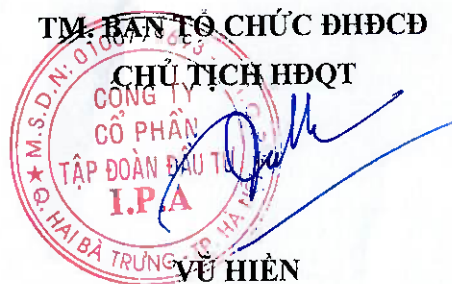 TM. BAN TỔ CHỨC ĐHĐCĐ
CHỦ TỊCH HĐQT
M.S.D.N: 0100
CÔNG TY
CỔ PHẦN
TẬP ĐOÀN ĐẦU TƯ
I.P.A
Q. HAI BÀ TRƯNG - TP. HÀ
VŨ HIỀN